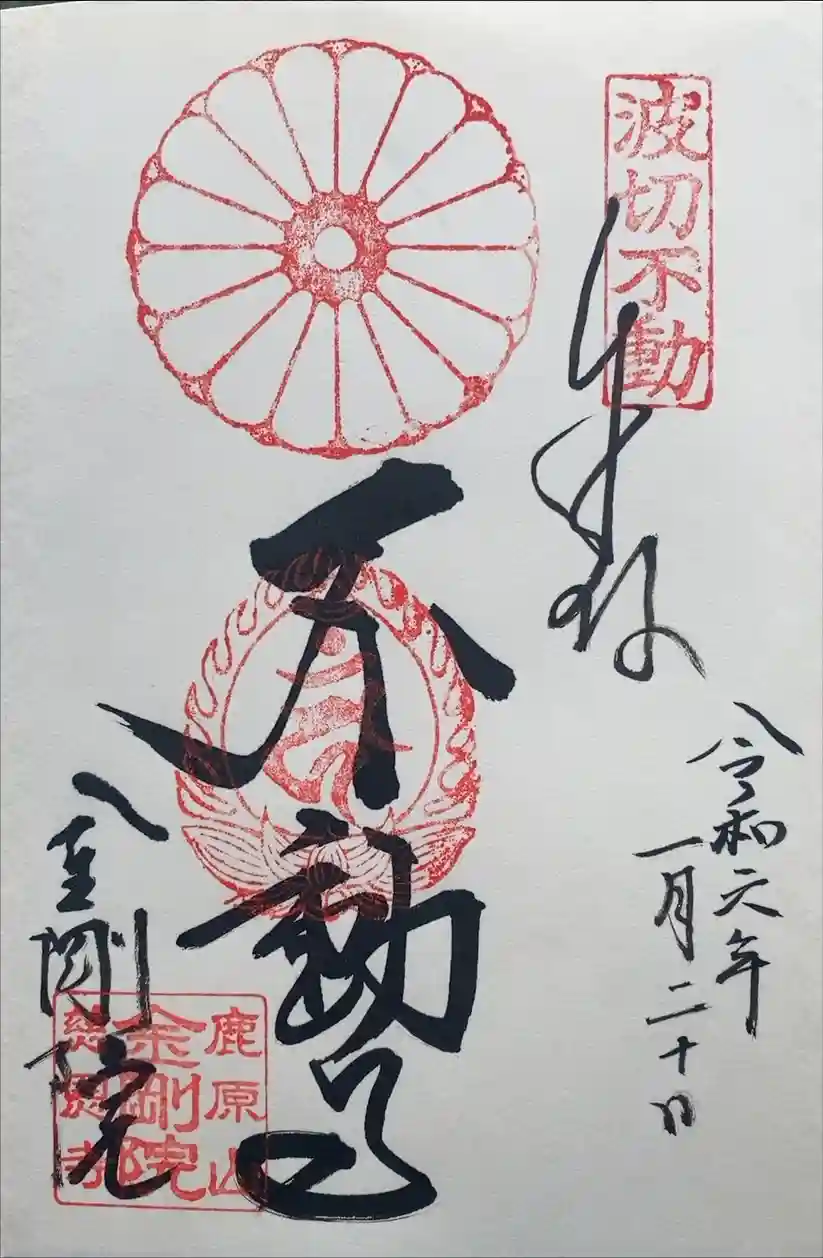 波切不動
奉拝
令和六年
一月二十日
不動
金剛院
鹿原山
金剛院
慈恩寺